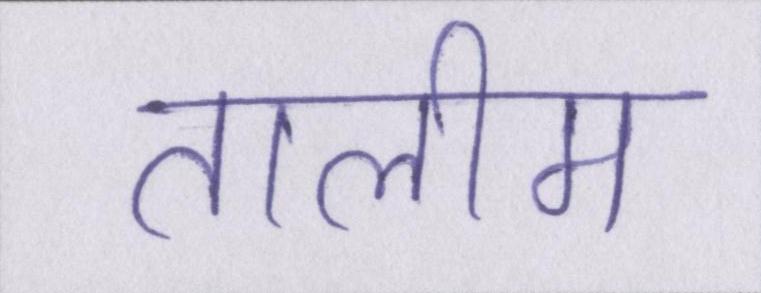 तालीम